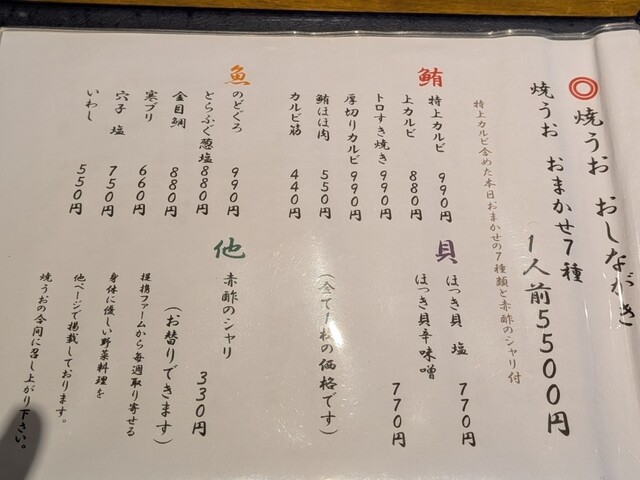 ◎焼うお おしながき
焼うお おまかせ7種
1人前5500円
特上カルビ含めた本日おまかせの7種類と赤酢のシャリ付
鮪
特上カルビ 990円
上カルビ 880円
トロすき焼き 990円
厚切りカルビ 990円
鮪ほほ肉 550円
カルビ筋 440円
魚
のどぐろ 990円
とらふぐ葱塩 880円
金目鯛 880円
寒ブリ 660円
穴子 塩 750円
いわし 550円
貝
ほっき貝 塩 770円
ほっき貝辛味噌 770円
(全て1枚の価格です)
他
赤酢のシャリ 330円
(お替りできます)
提携ファームから毎週取り寄せる
身体に優しい野菜料理を
他ページで掲載しております。
焼うおの合間に召し上がり下さい。